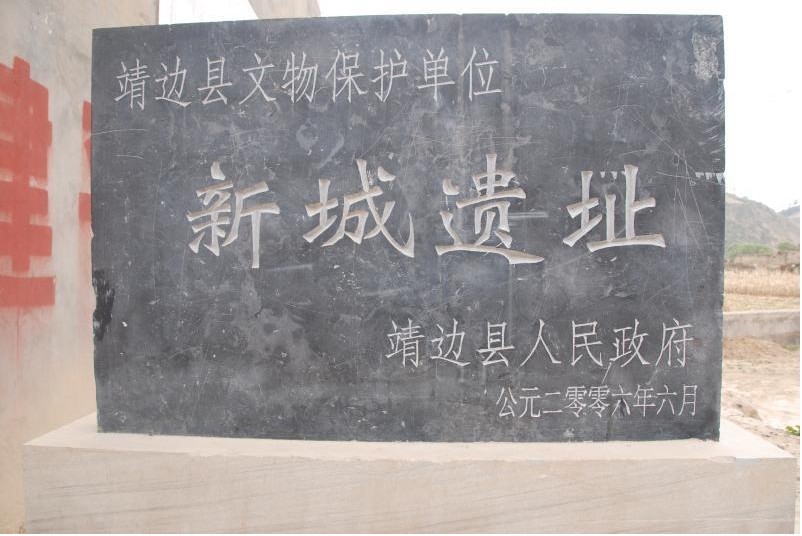 靖边县文物保护单位
新城遗址
靖边县人民政府
公元二零零六年六月